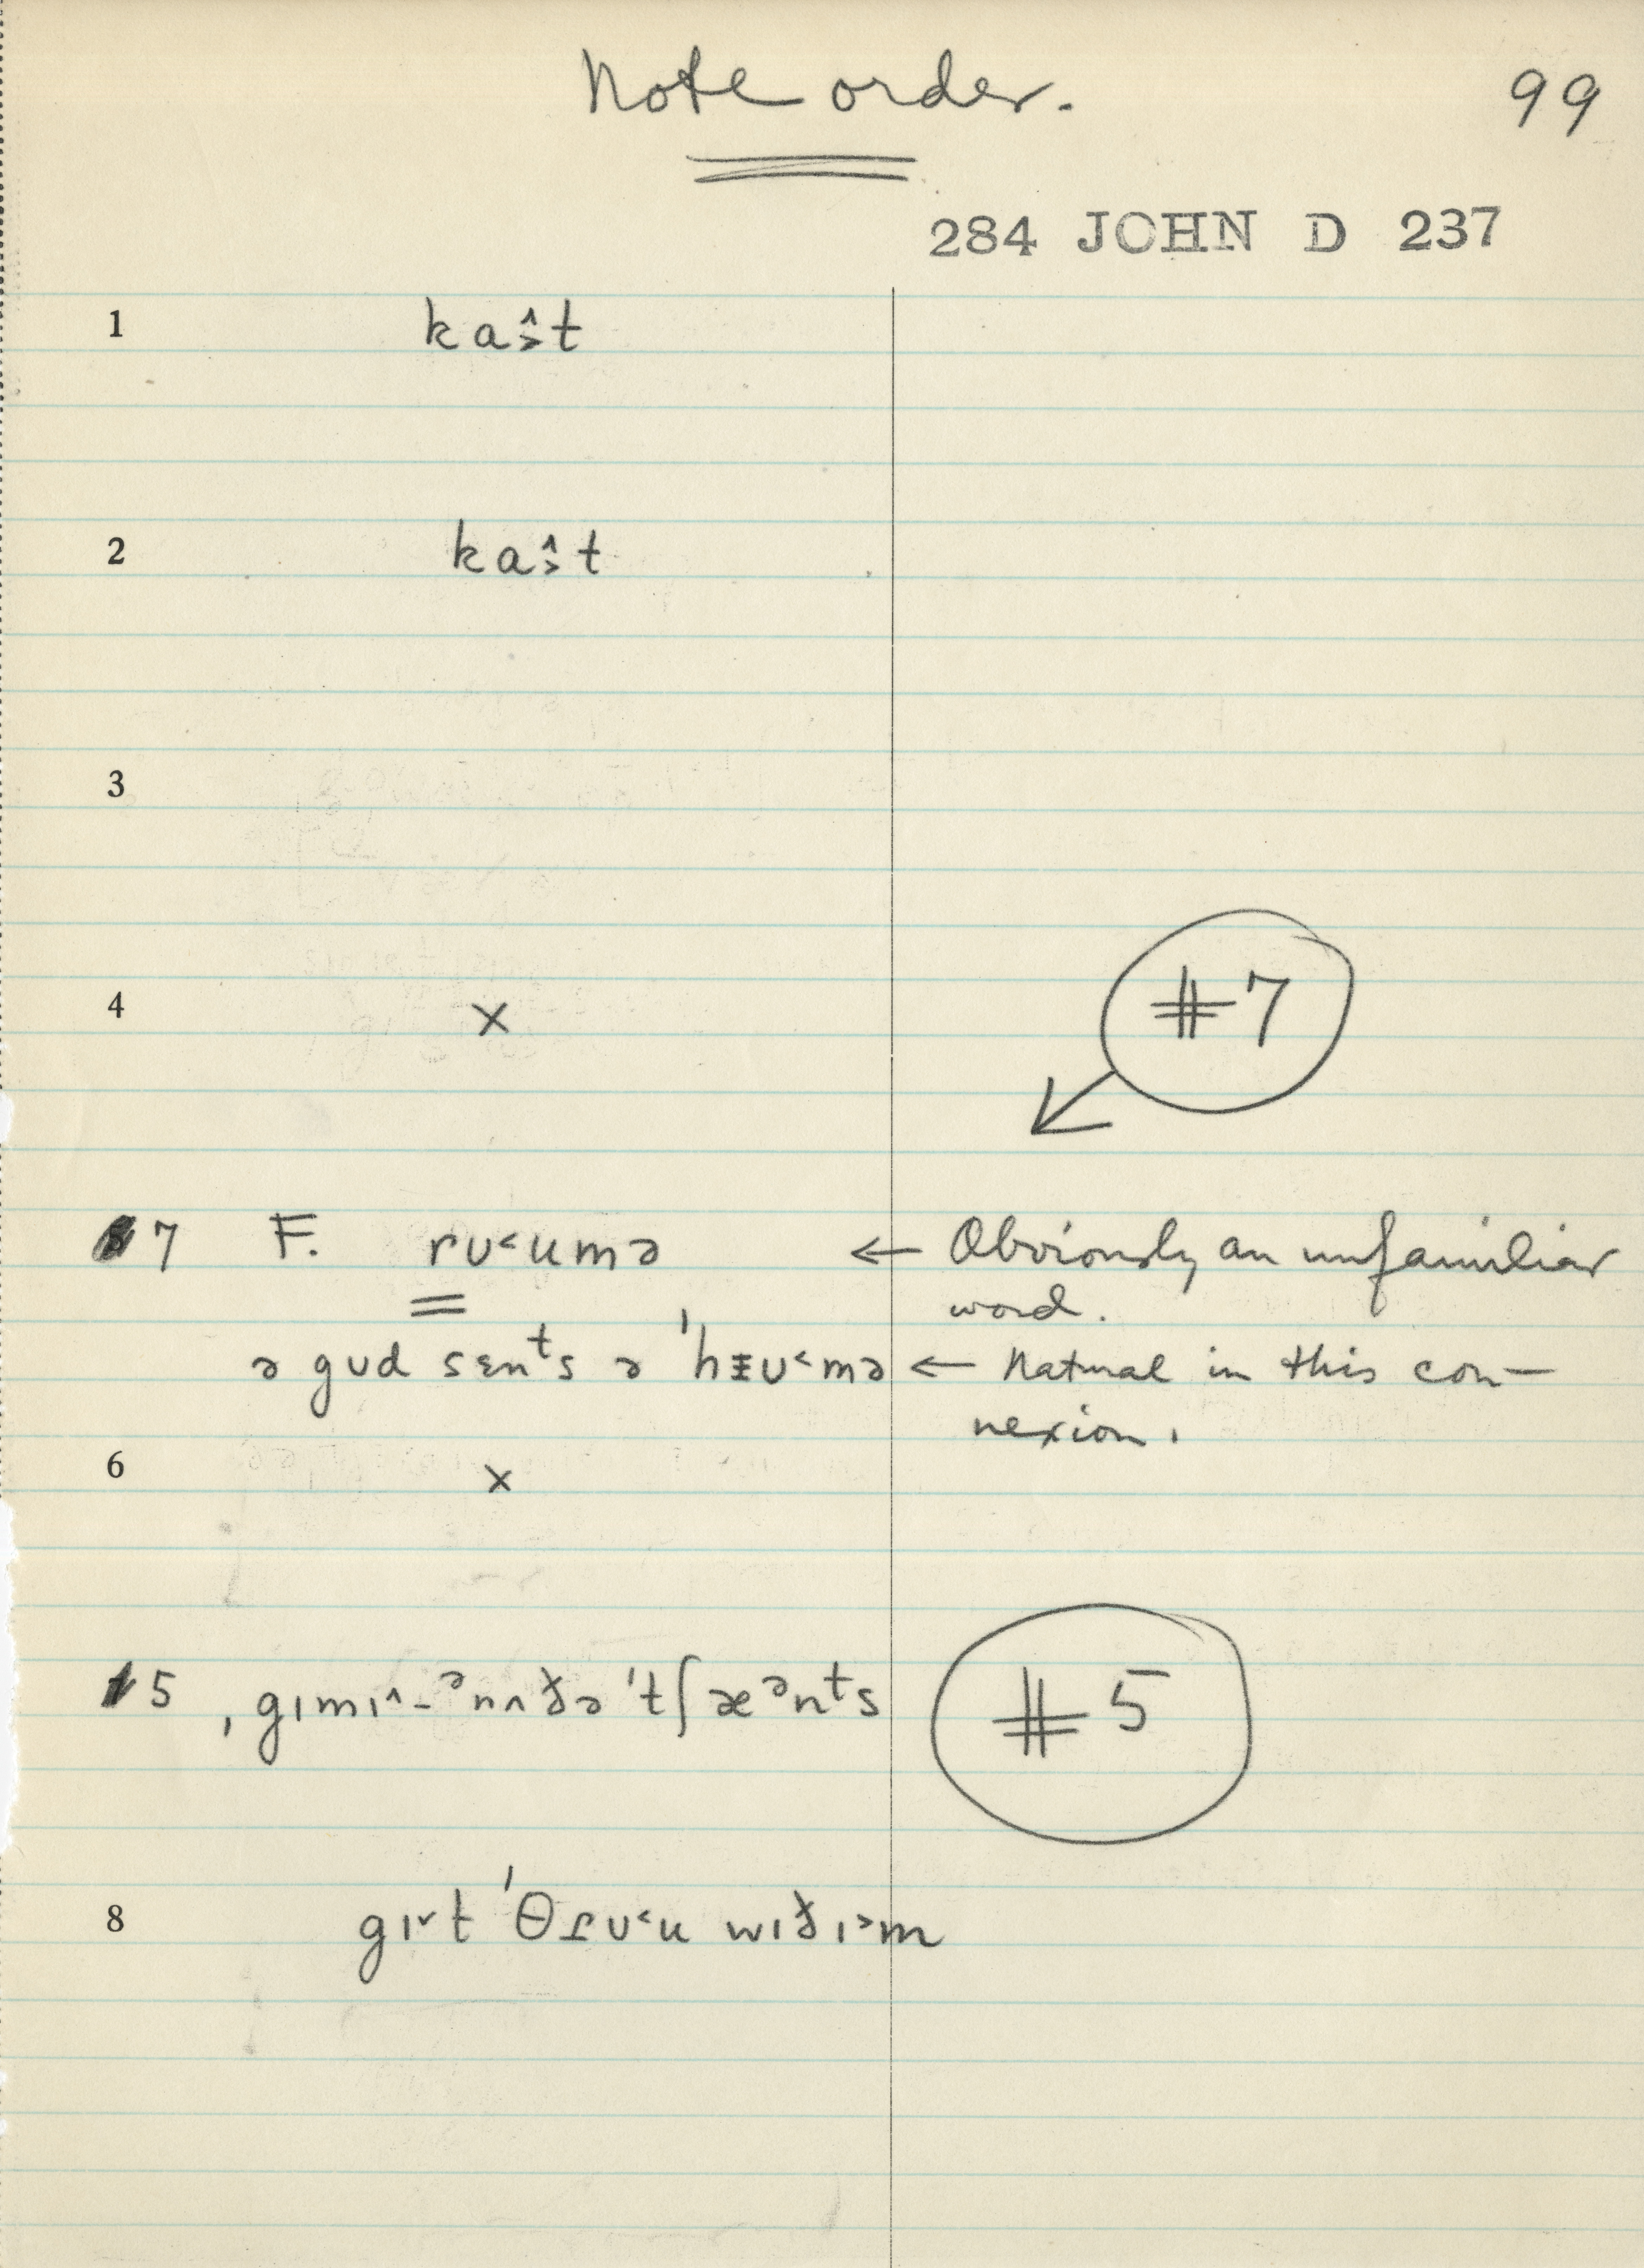 Note order.
99
284 JOHN D 237
1 kaˆ˃t
2 kaˆ˃t
3
4 × #7
7 F. rʊ˂umə ← Obviously an unfamiliar
word.
ə gʊd sɛnᵗs ə 'hɪʊ˂mə ← Natural in this con-
nexion.
6 ×
5 ˌgɪmɪ^-ᵊnʌðə 'tʃæᵊnᵗs #5
8 gɪ˅t 'θɾʊ˂u wɪðɪ˃m